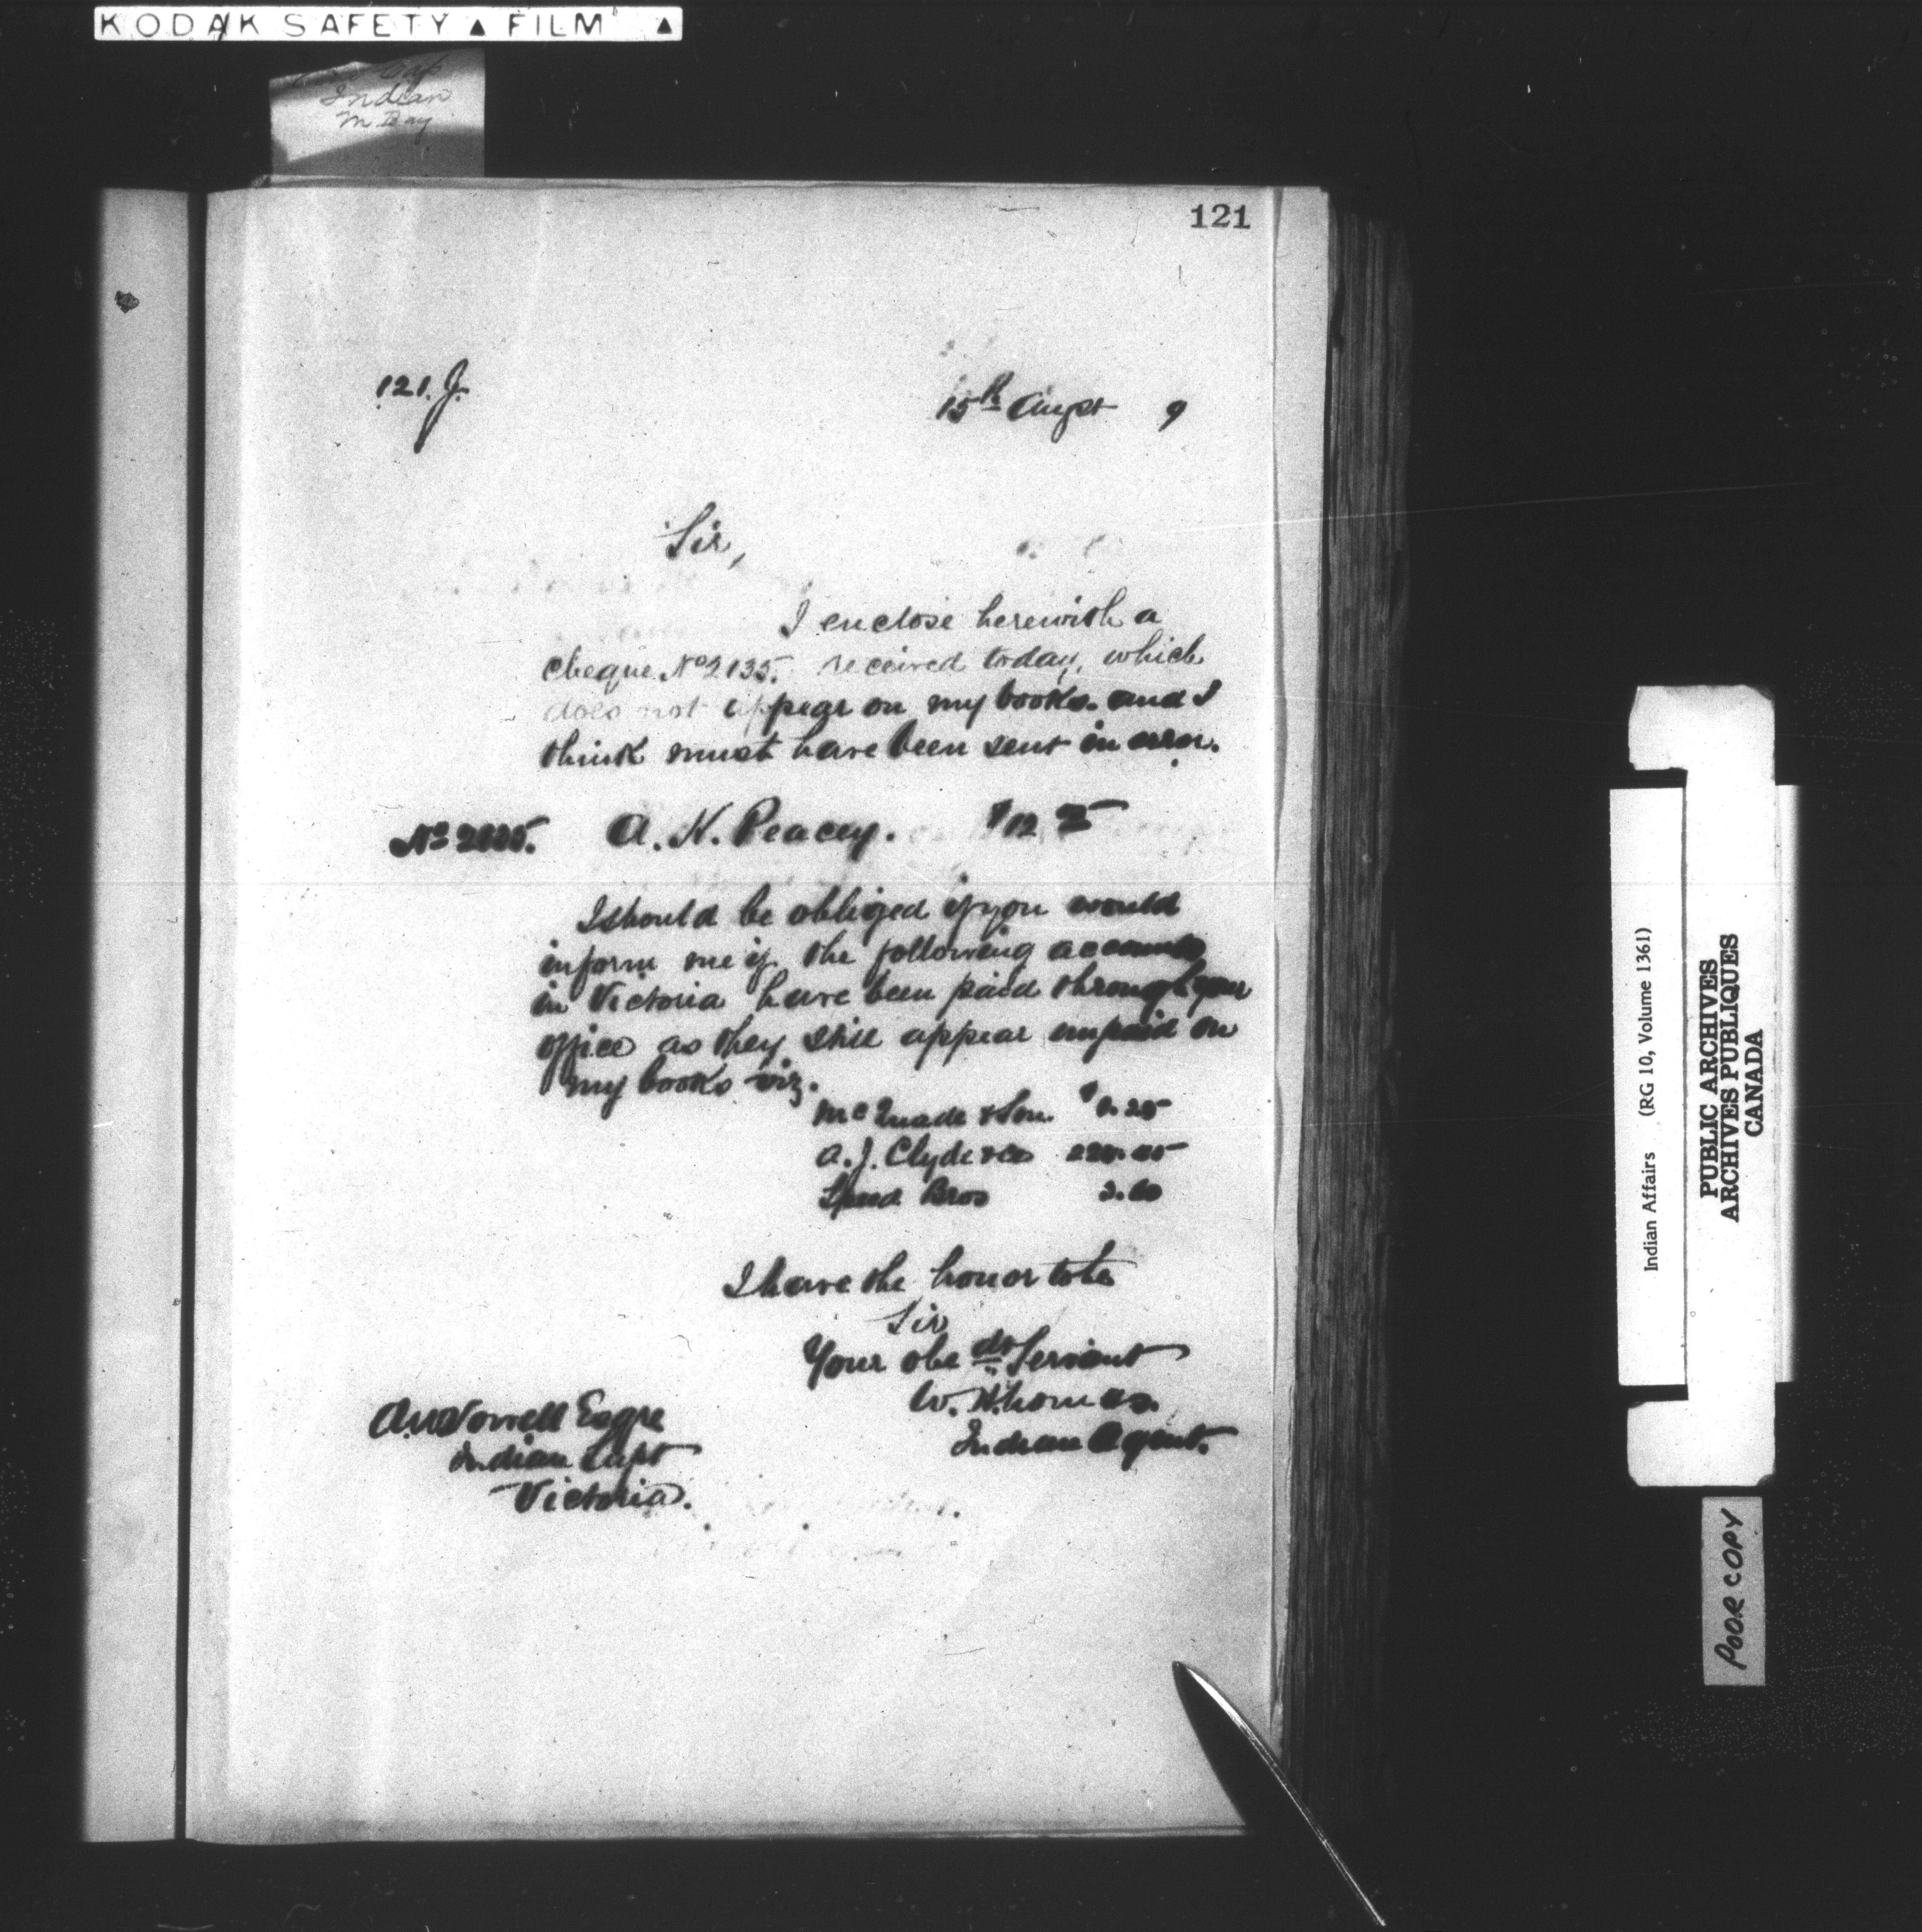 KODAK SAFETY ▲ FILM ▲
Indian
121
121. J.
15th Augst 9
Sir,
I enclose herewith a
cheque No 2135. received today, which
does not appear on my books. and I
think must have been sent in error.
No A. K. Peacey. $12
I should be obliged if you would
inform me if the following accounts
in Victoria have been paid through your
office as they still appear unpaid on
my books viz.
McQuade & Son
A. J. Clyde & Co
Bros
I have the honor to be
Sir
Your obedt Servant
Indian Agent.
A W Vowell Esqre
Indian Supt
Victoria.
Indian Affairs (RG 10, Volume 1361)
PUBLIC ARCHIVES
ARCHIVES PUBLIQUES
CANADA
POOR COPY